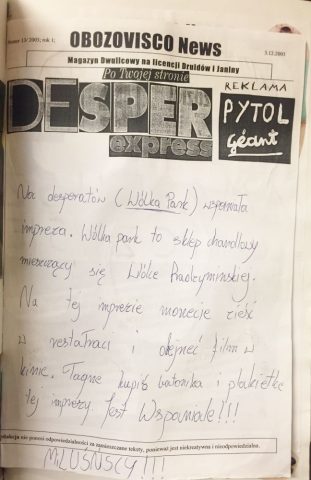 Numer 13/2003; rok 1;
OBOZOVISCO News
3.12.2003
Magazyn Dwulicowy na licencji Druidów i Janiny
Po Twojej stronie
DESPER
express
REKLAMA
PYTOL
Géant
Na desperatów (Wólka Park) wspaniała
impreza. Wólka park to sklep chandlowy
mieszczący się Wólce Radzymińskiej.
Na tej imprezie monecie zieść
w restauraci i obejrzeć film w
kinie. Tagne kupiś batonika i plakietkę
tej imprezy. Jest Wspaniale!!!
Redakcja nie ponosi odpowiedzialności za zamieszczane teksty, ponieważ jest niekreatywna i nieodpowiedzialna.
MLUŚNSCY!!!